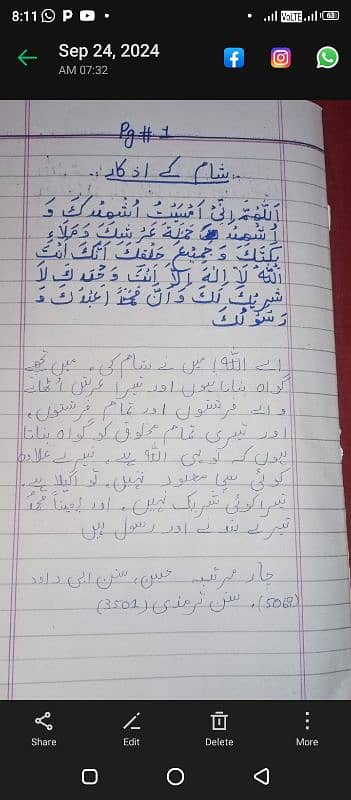 8:11
63
Sep 24, 2024
AM 07:32
Pg # 1
شام کے اذکار
اَللّٰهُمَّ اِنِّیْ اَمْسَیْتُ اُشْهِدُكَ وَ
اُشْهِدُ حَمَلَةَ عَرْشِكَ وَمَلَآءِ
یِكَتَكَ وَ جَمِیْعَ خَلْقِكَ اَنَّكَ اَنْتَ
اللّٰهُ لَا اِلٰهَ اِلَّا اَنْتَ وَحْدَكَ لَا
شَرِیْكَ لَكَ وَ اَنَّ مُحَمَّدًا عَبْدُكَ وَ
رَسُوْلُكَ
اے اللّٰہ! میں نے شام کی، میں تجھے
گواہ بناتا ہوں اور تیرا عرش اُٹھانے
والے فرشتوں اور تمام فرشتوں،
اور تیری تمام مخلوق کو گواہ بناتا
ہوں کہ تو ہی اللّٰہ ہے، تیرے علاوہ
کوئی سچا معبود نہیں، تو اکیلا ہے،
تیرا کوئی شریک نہیں، اور یقیناً محمدؐ
تیرے بندے اور رسول ہیں
چار مرتبہ حسن، سنن ابی داود
(5069)، سنن ترمذی (3501)
Share
Edit
Delete
More